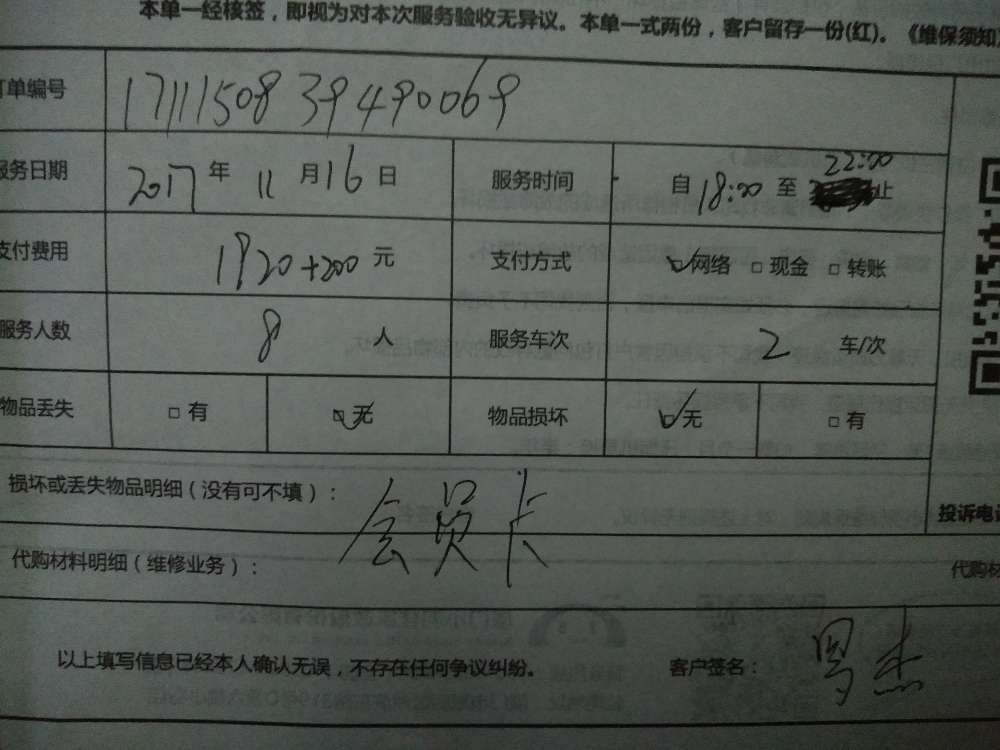 本单一经核签，即视为对本次服务验收无异议。本单一式两份，客户留存一份(红)。《维保须知
订单编号 1711150839490069
服务日期 2017 年 11 月 16 日 服务时间 自 18:00 至 22:00 止
支付费用 1920+200 元 支付方式 ☑网络 □现金 □转账
服务人数 8 人 服务车次 2 车/次
物品丢失 □有 ☑无 物品损坏 ☑无 □有
损坏或丢失物品明细（没有可不填）： 会员卡
投诉电
代购材料明细（维修业务）：
代购材
以上填写信息已经本人确认无误，不存在任何争议纠纷。 客户签名： 罗杰